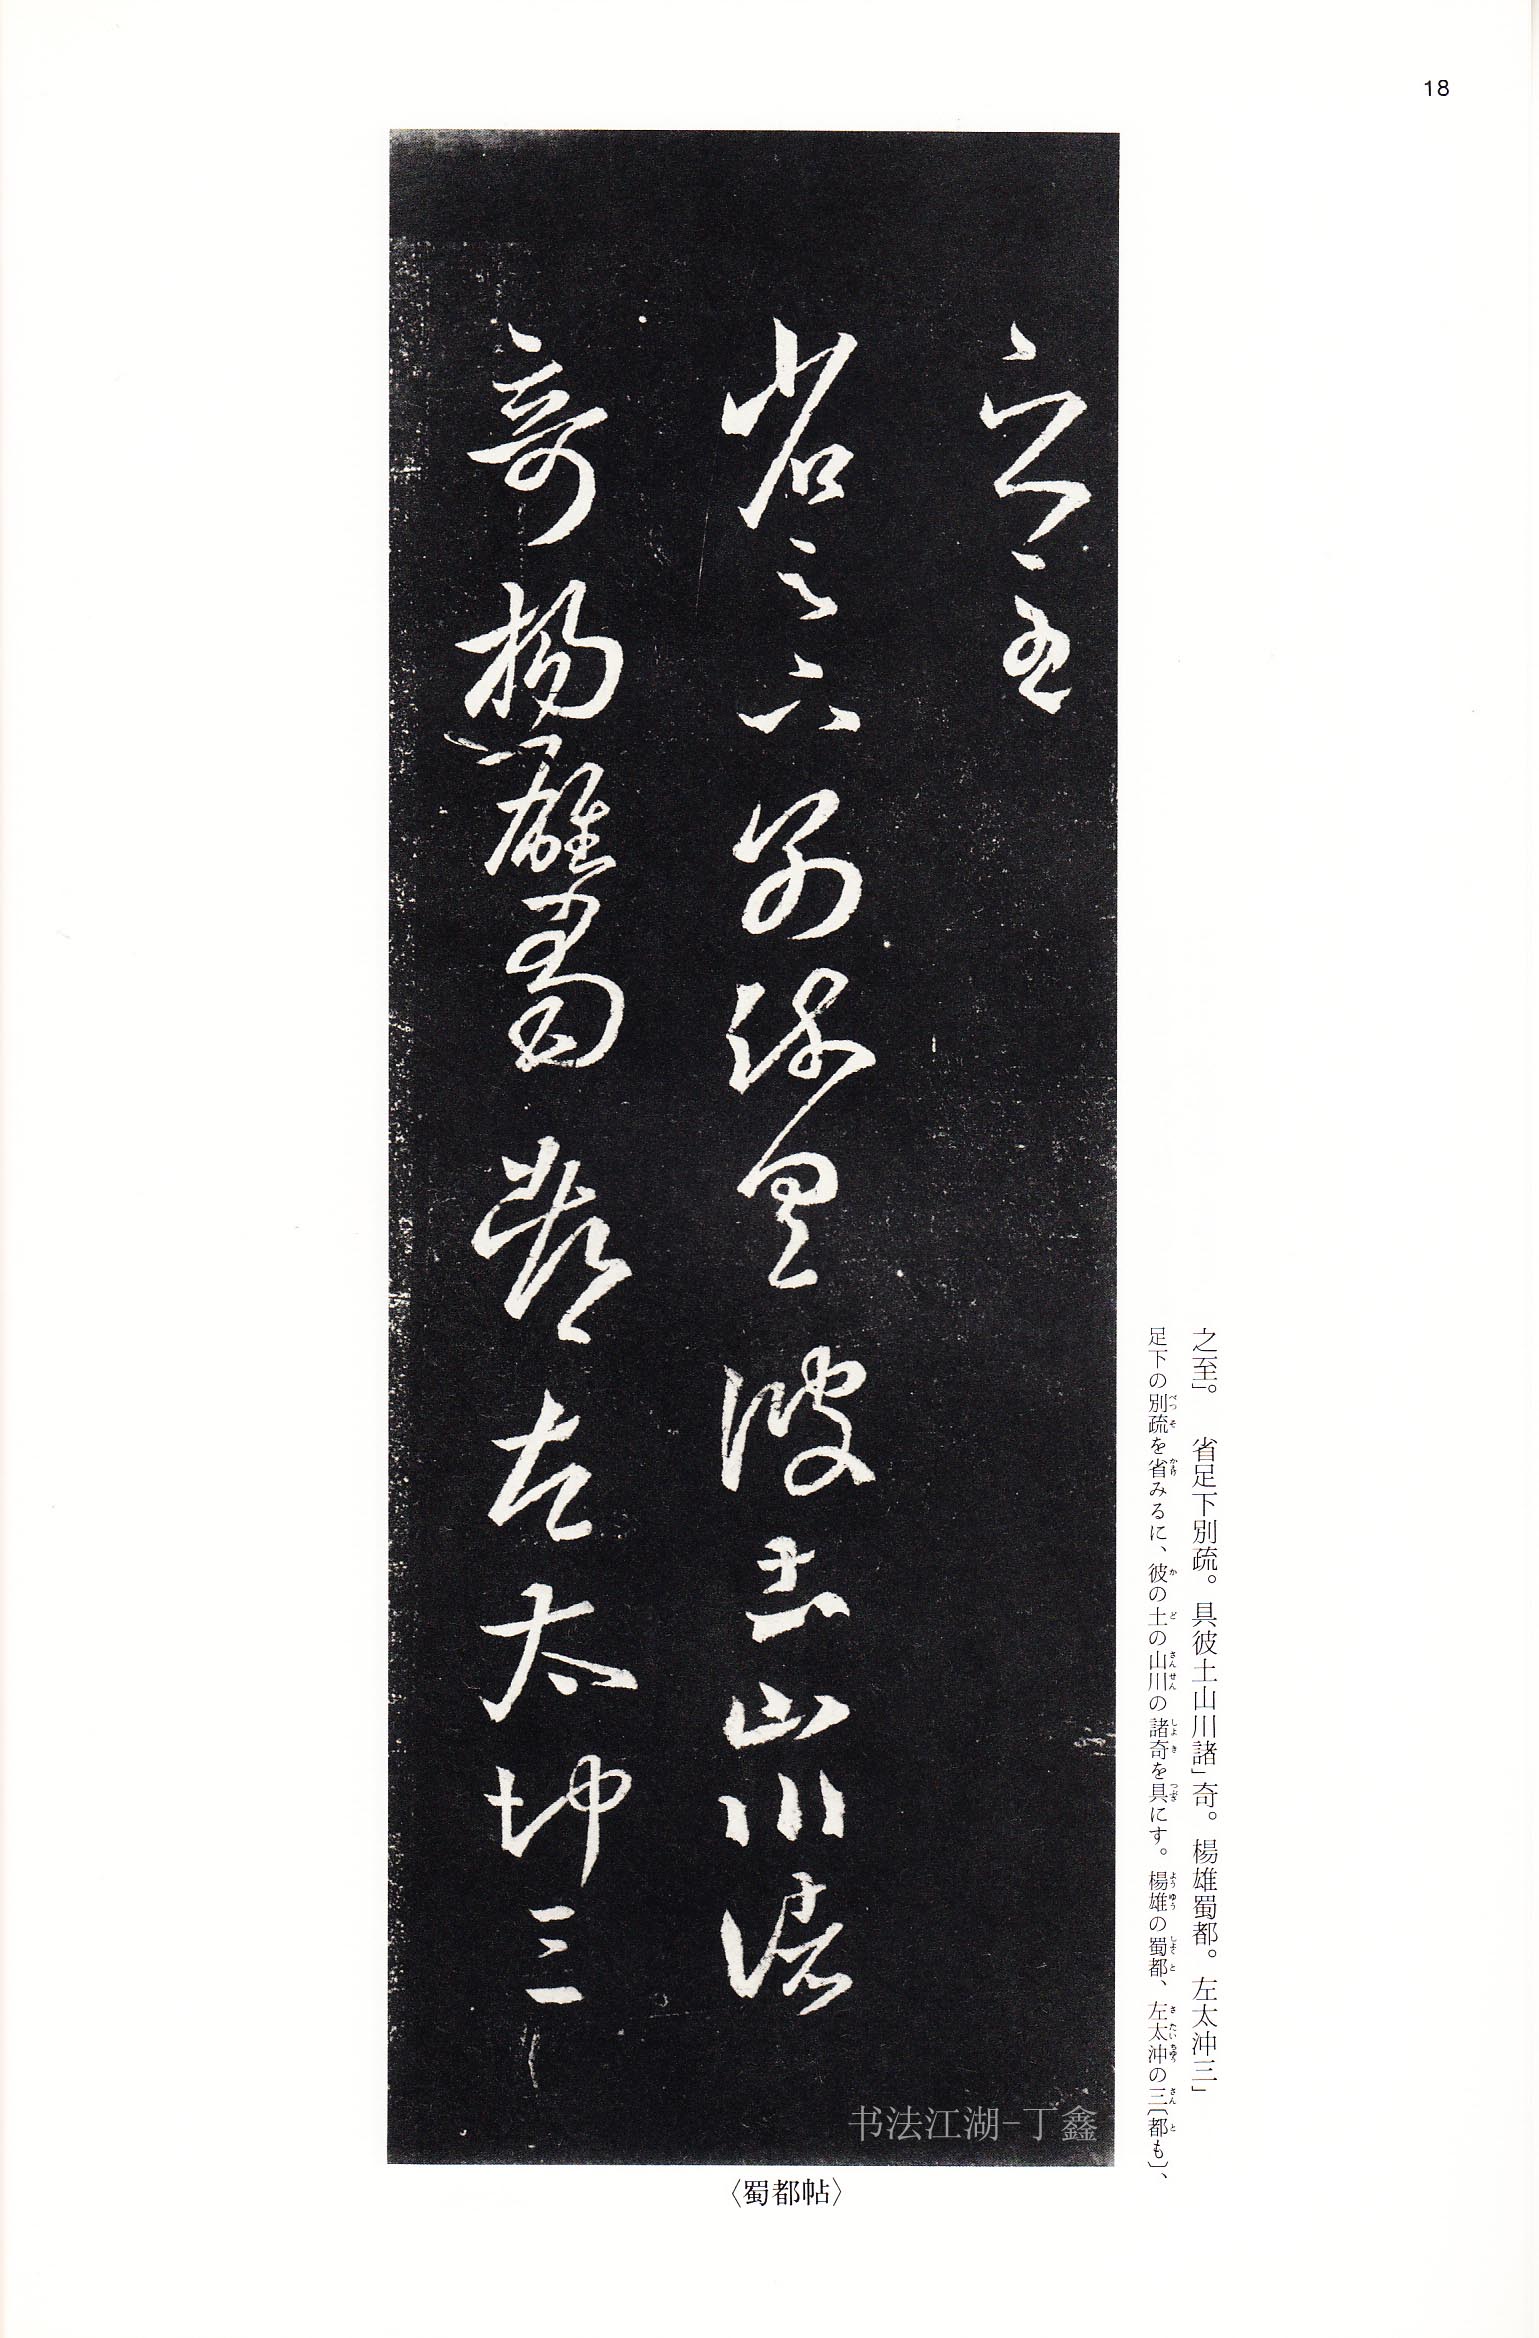 18
之至」。　省足下別疏。具彼土山川諸」奇。楊雄蜀都。左太沖三」
足下の別疏を省みるに、彼の土の山川の諸奇を具にす。楊雄の蜀都、左太沖の三〔都も〕、
之至
省足下別疏具彼土山川諸
奇楊雄蜀都左太沖三
书法江湖-丁鑫
〈蜀都帖〉